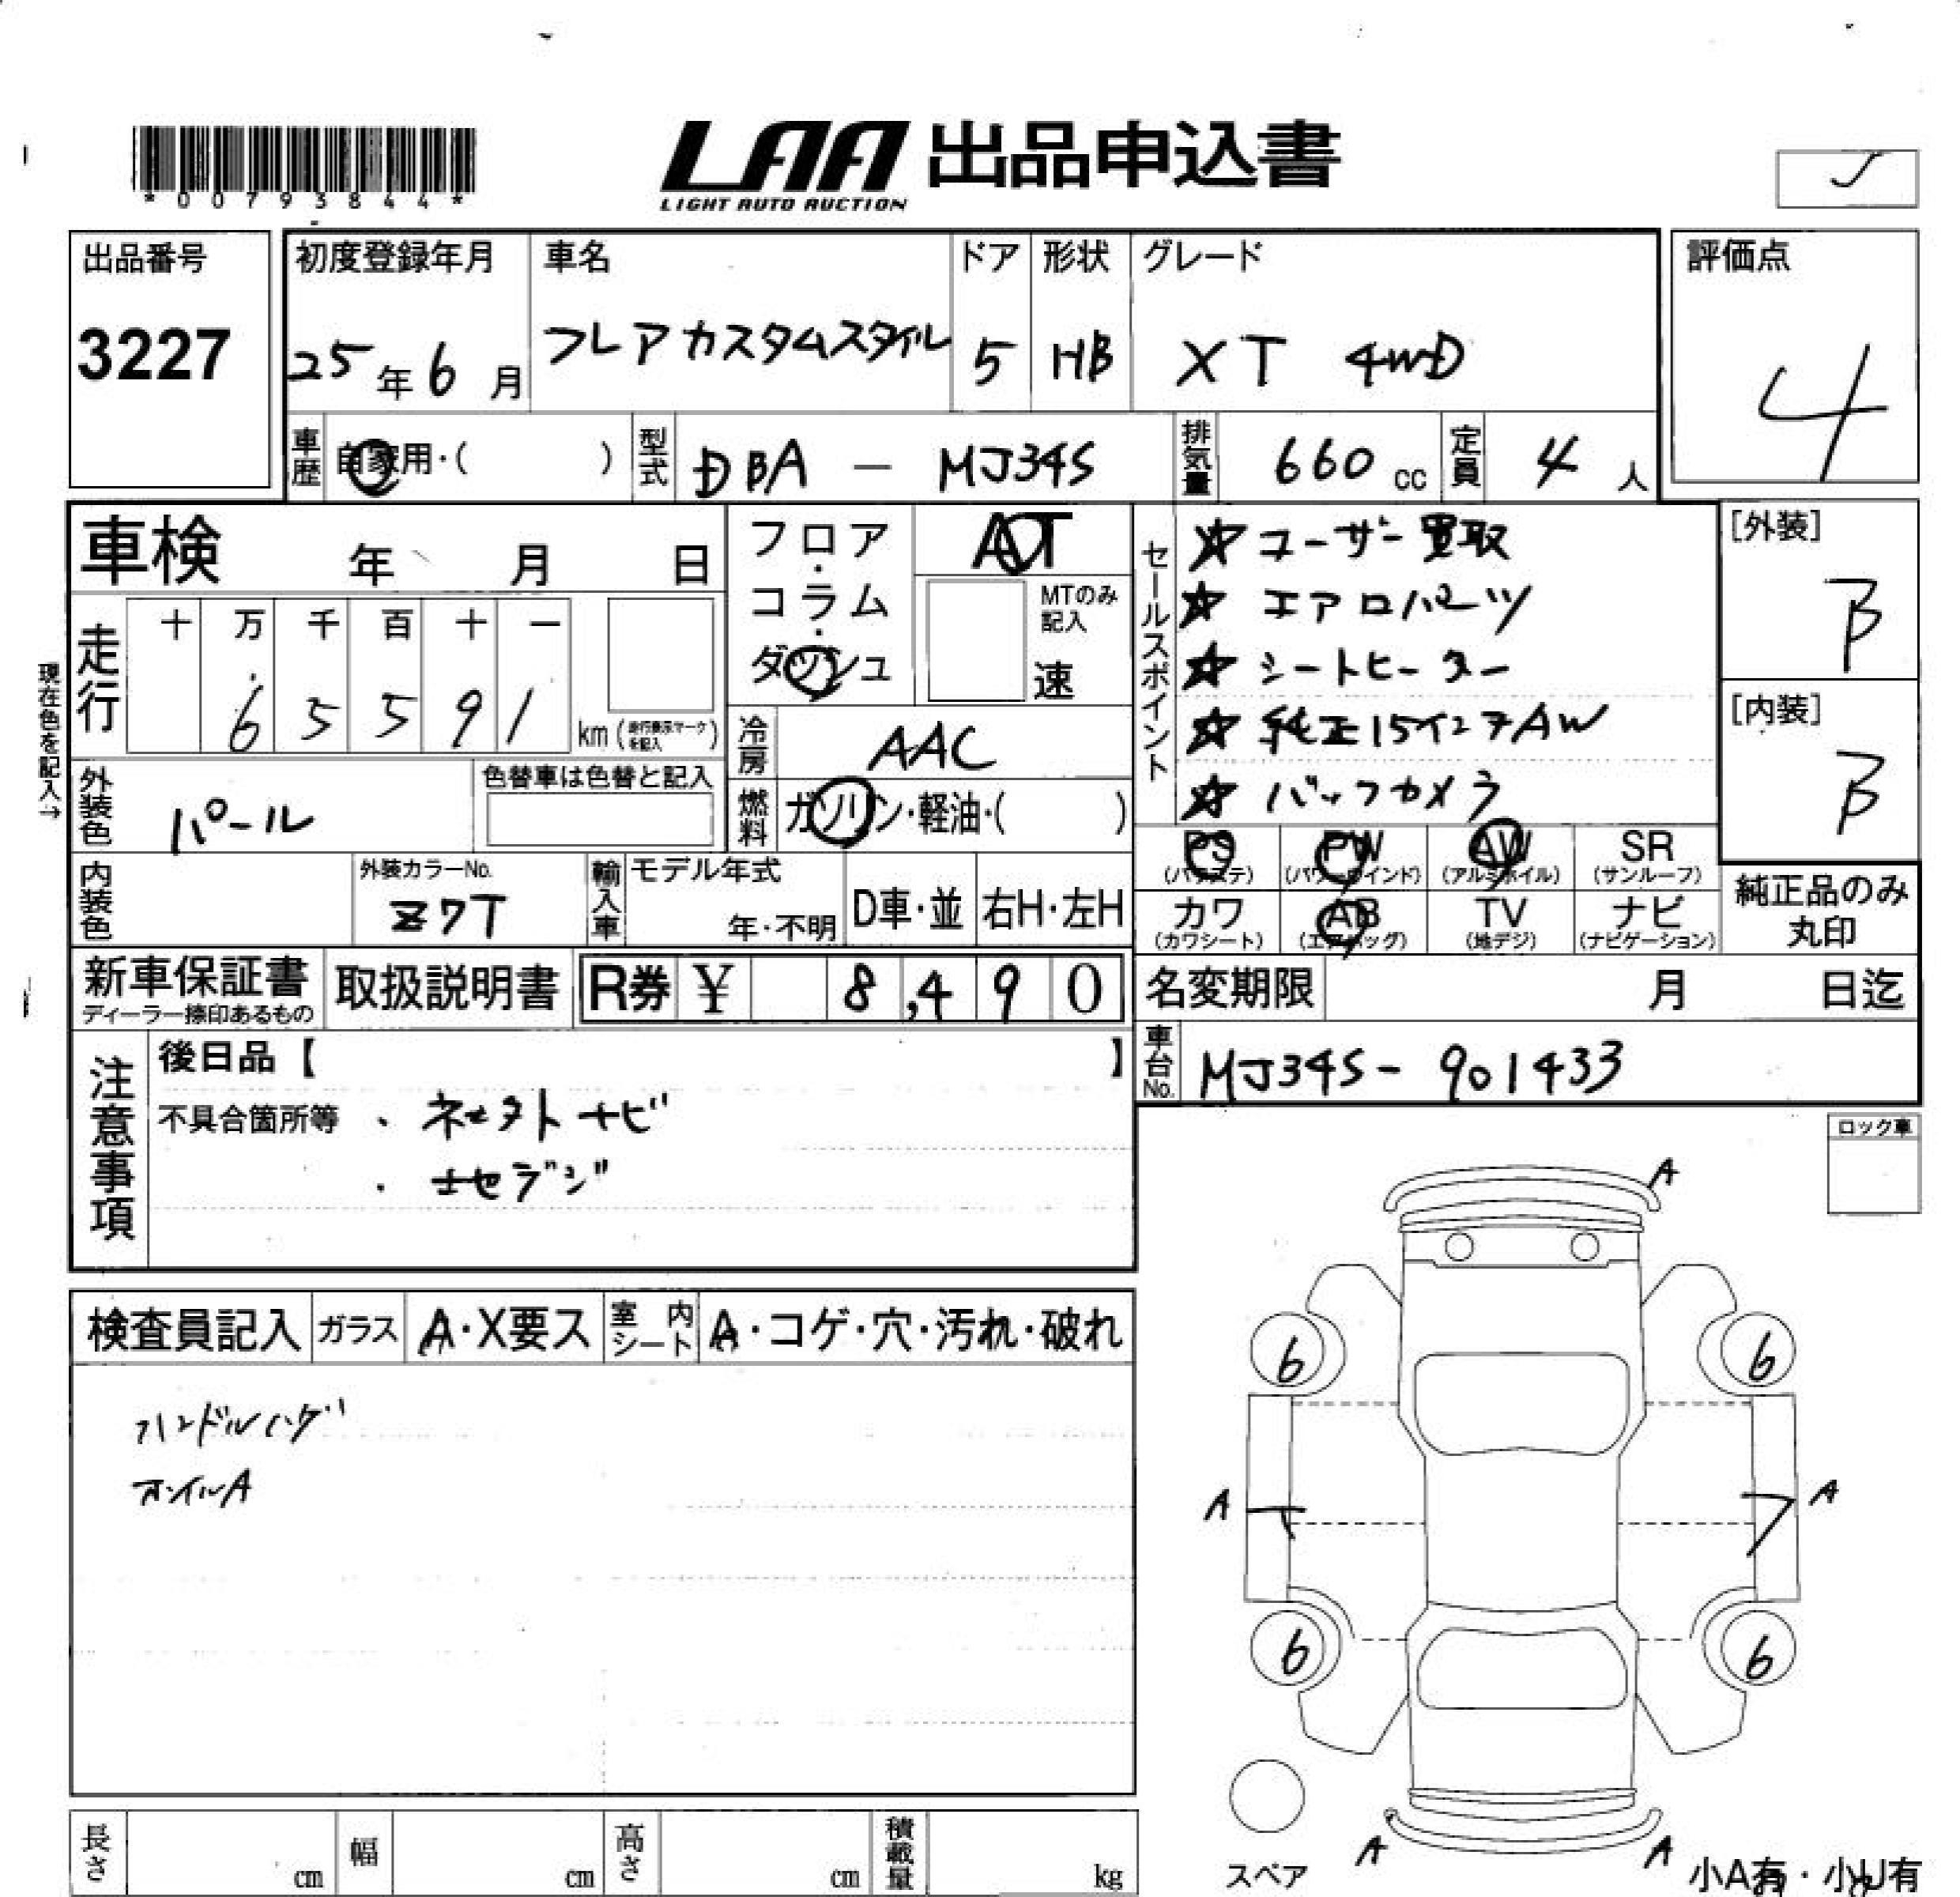 *00793844*
LAA 出品申込書
LIGHT AUTO AUCTION
J
出品番号
3227
初度登録年月
25年6月
車名
フレアカスタムスタイル
ドア
5
形状
HB
グレード
XT 4WD
評価点
4
車歴 自家用・( )
型式 DBA - MJ34S
排気量 660 cc
定員 4 人
車検 年 月 日
フロア・コラム・ダッシュ
AT
MTのみ記入
速
セールスポイント
☆ユーザー買取
☆エアロパーツ
☆シートヒーター
☆純正15インチAW
☆バックカメラ
[外装]
B
[内装]
B
現在色を記入→
走行
十 万 千 百 十 一
6 5 5 9 1
km(走行表示マークを記入)
冷房 AAC
外装色 パール
色替車は色替と記入
燃料 ガソリン・軽油・( )
PS (パワステ)
PW (パワーウインド)
AW (アルミホイル)
SR (サンルーフ)
内装色
外装カラーNo.
Z7T
輸入車
モデル年式
年・不明
D車・並
右H・左H
カワ (カワシート)
AB (エアバッグ)
TV (地デジ)
ナビ (ナビゲーション)
純正品のみ
丸印
新車保証書
ディーラー捺印あるもの
取扱説明書
R券 ¥ 8,490
名変期限 月 日迄
注意事項
後日品【 】
車台No. MJ34S- 901433
不具合箇所等 ・ ネセタト ナビ
・ 地デジ
ロック車
検査員記入
ガラス
A・X要ス
室内シート
A・コゲ・穴・汚れ・破れ
ハンドルハゲ
ホイルA
A
6
6
A
A
6
6
スペア
A
A
小A有・小U有
長さ cm
幅 cm
高さ cm
積載量 kg